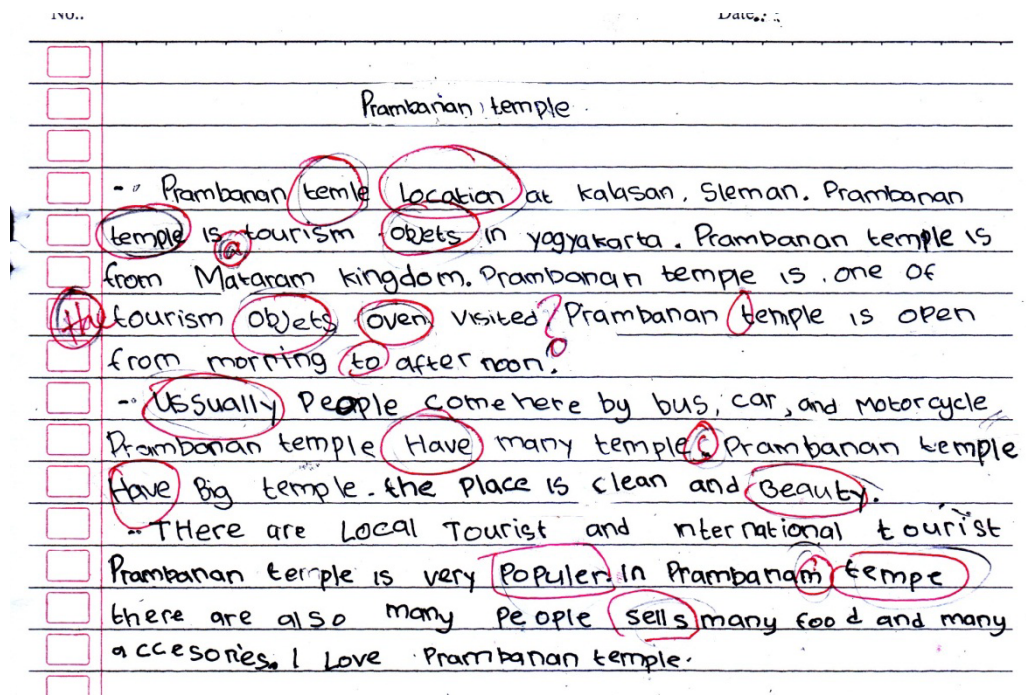 No.. Date..:
Prambanan temple
- Prambanan temle Location at kalasan, Sleman. Prambanan
temple is a tourism objets in yogyakarta. Prambanan temple is
from Mataram kingdom. Prambanan temple is one of
the tourism objets oven visited? Prambanan temple is open
from morning to after noon.
- Ussually People come here by bus, car, and Motorcycle
Prambanan temple Have many temple Prambanan temple
Have Big temple. the Place is clean and Beauty.
- THere are Local Tourist and nternational tourist
Prambanan temple is very Populer. in Prambanam tempe
there are also many People sells many food and many
accesories. I Love Prambanan temple.